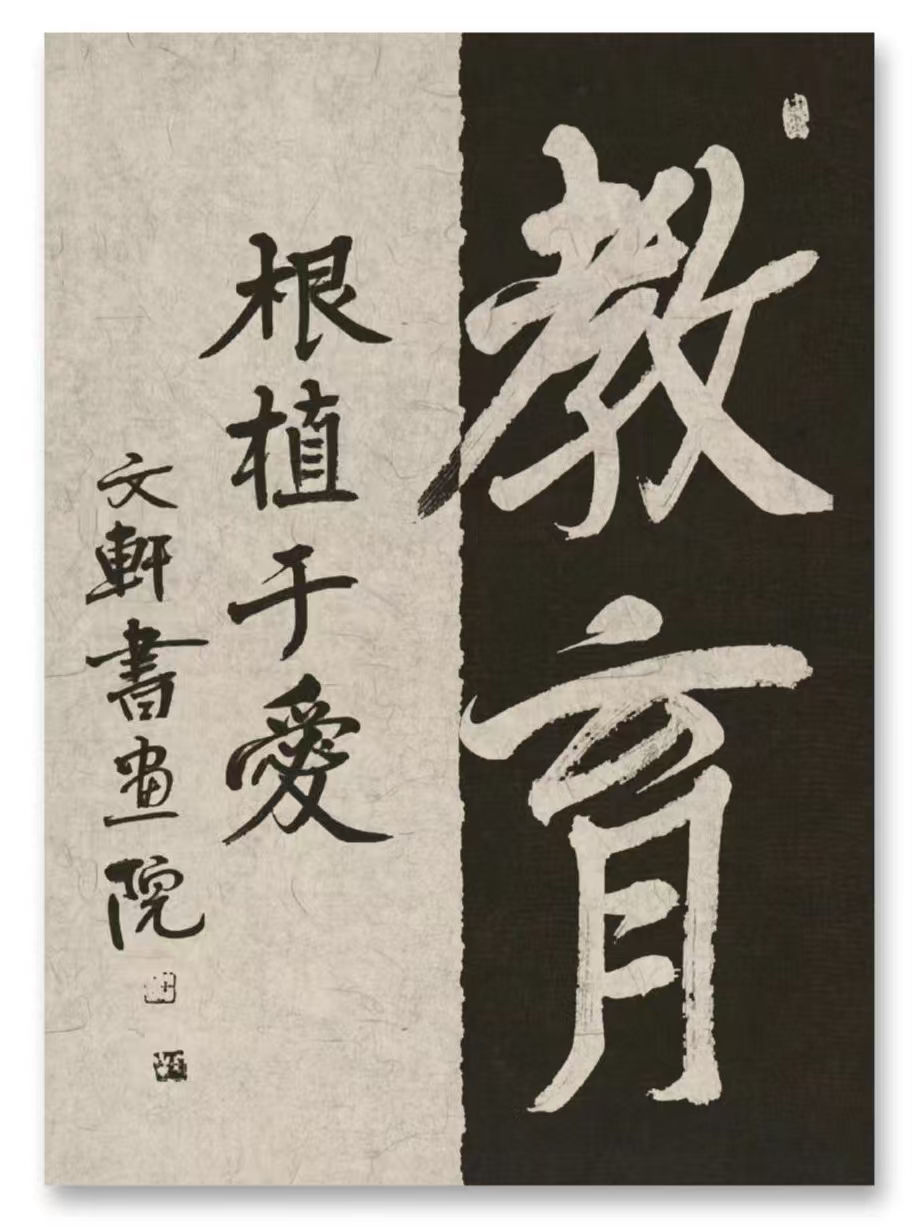 教育
根植于愛
文軒書畫院